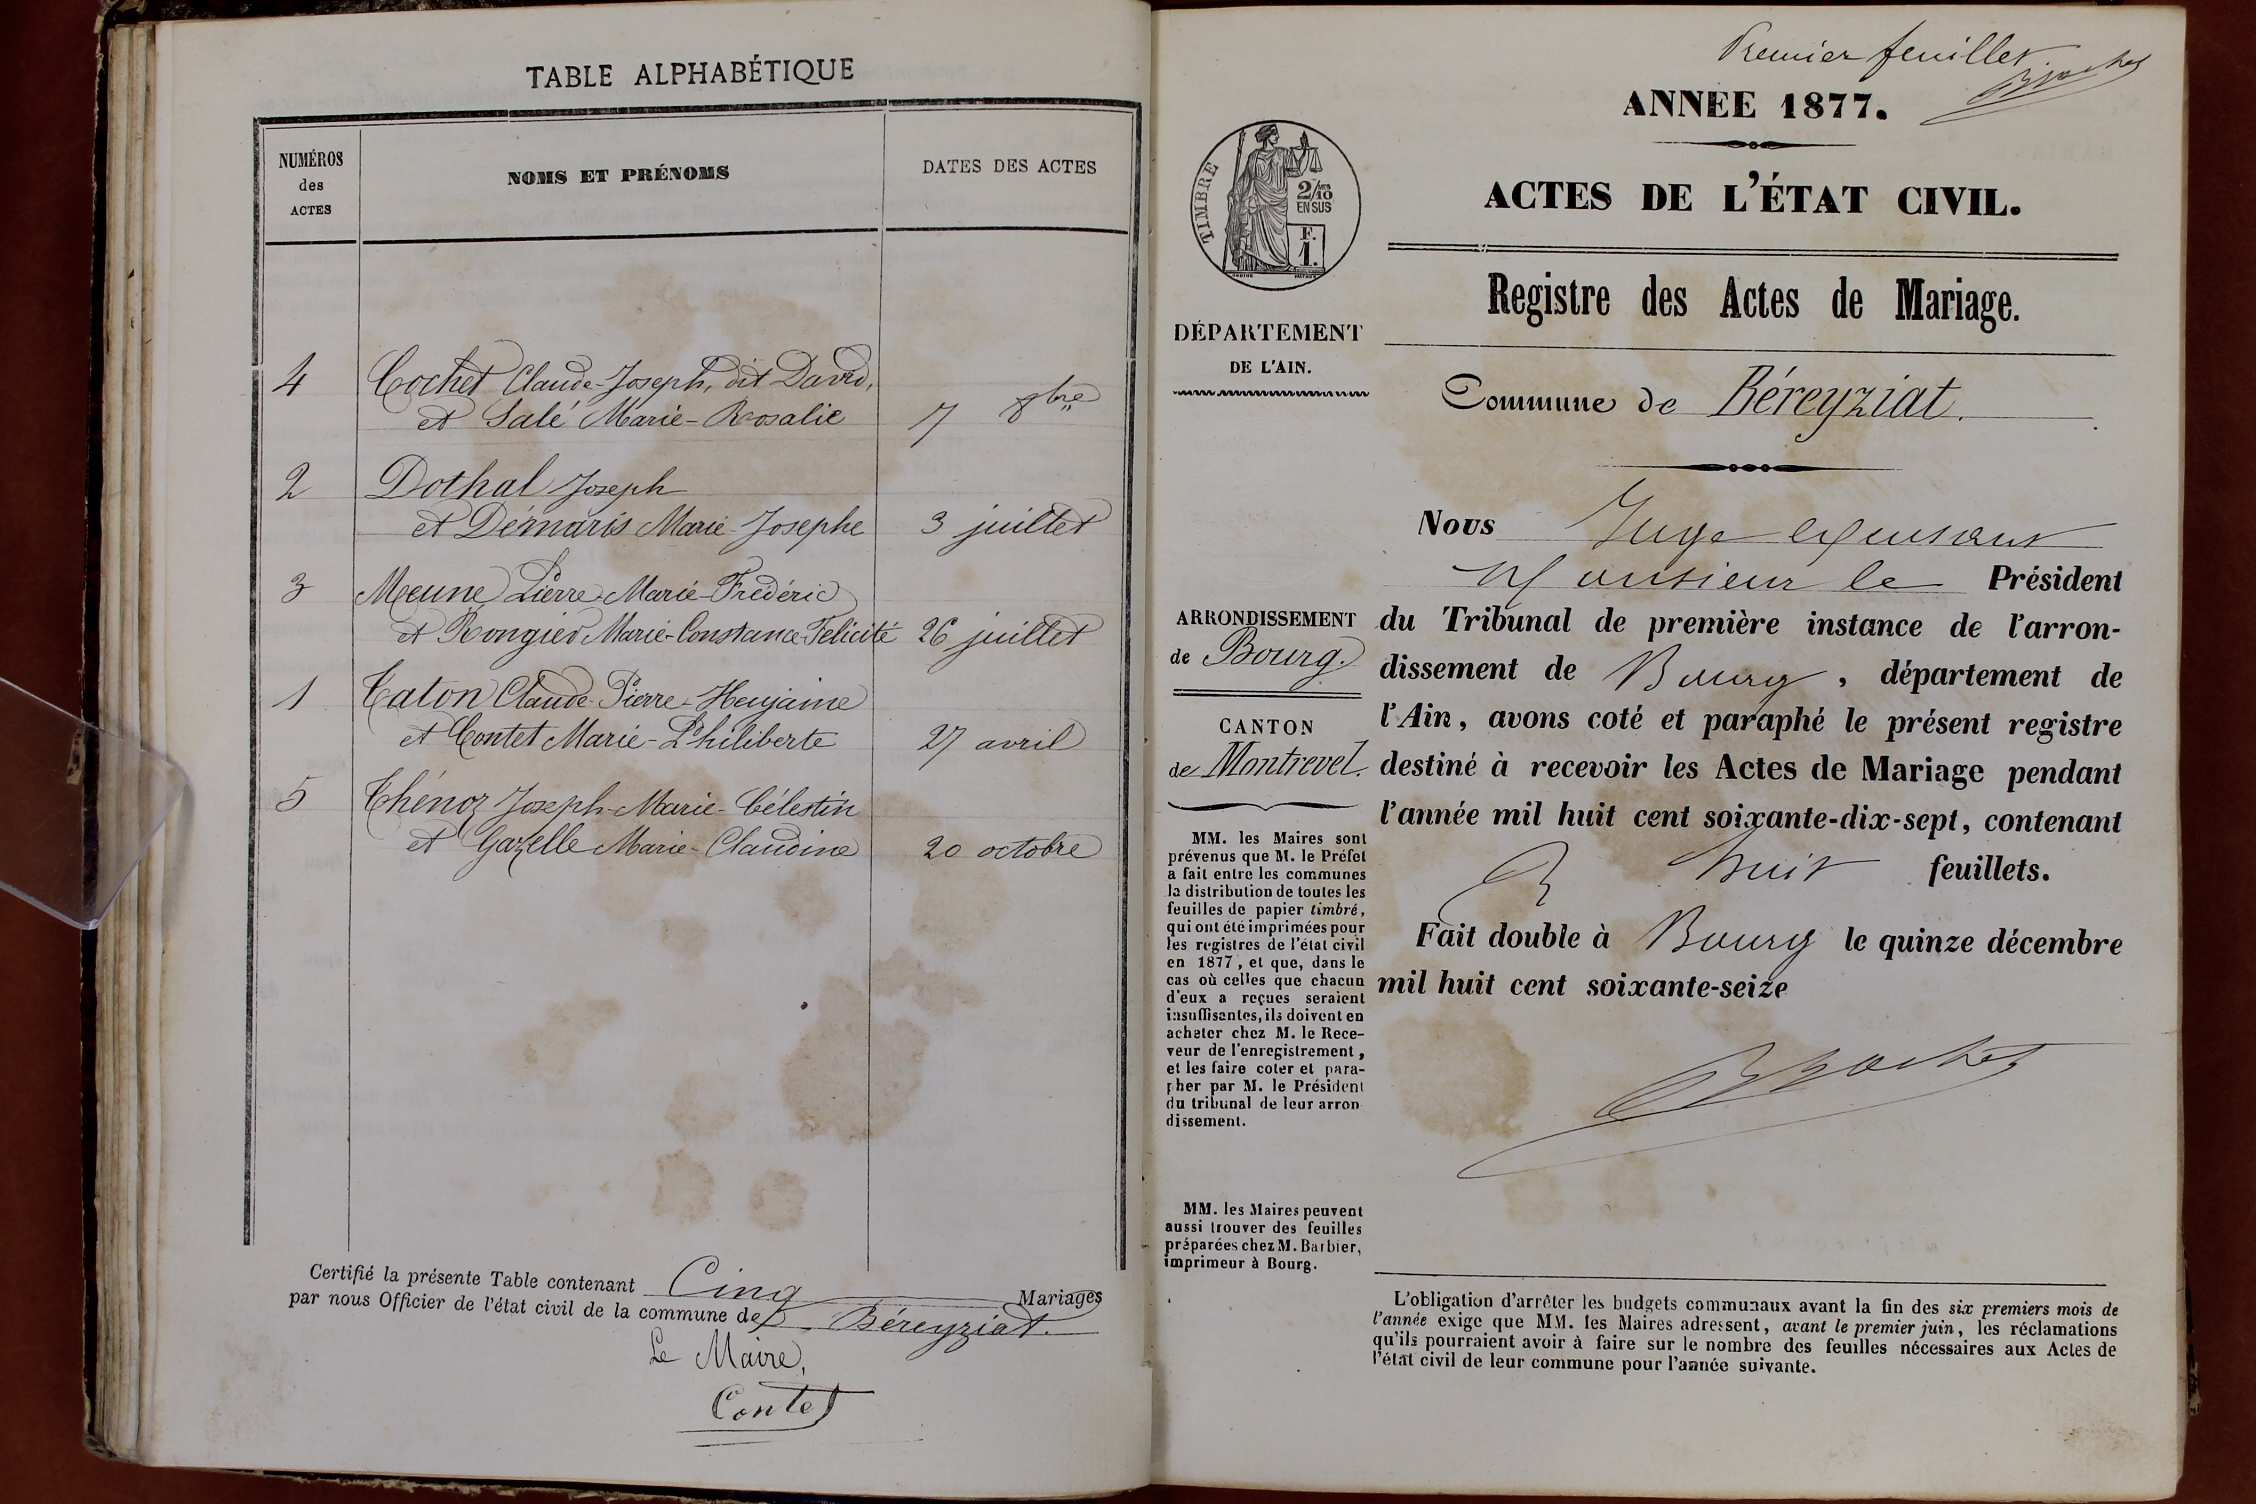 TABLE ALPHABÉTIQUE
NUMÉROS
des
ACTES
NOMS ET PRÉNOMS
DATES DES ACTES
4 Cochet Claude-Joseph, dit David,
et Salé Marie-Rosalie 7 8bre
2 Dothal Joseph
et Démaris Marie-Josephe 3 juillet
3 Meune Pierre-Marie-Frédéric
et Rongier Marie-Constance-Félicité 26 juillet
1 Caton Claude-Pierre-
et Contet Marie-Philiberte 27 avril
5 Chénoz Joseph-Marie-Célestin
et Gazelle Marie-Claudine 20 octobre
Certifié la présente Table contenant Cinq Mariages
par nous Officier de l'état civil de la commune de Béreyziat.
Le Maire,
Contet
Premier feuillet
ANNÉE 1877.
ACTES DE L'ÉTAT CIVIL.
TIMBRE
2/10
EN SUS
F.
1.
Registre des Actes de Mariage.
DÉPARTEMENT
DE L'AIN.
Commune de Béreyziat.
ARRONDISSEMENT
de Bourg.
CANTON
de Montrevel.
MM. les Maires sont
prévenus que M. le Préfet
a fait entre les communes
la distribution de toutes les
feuilles de papier timbré,
qui ont été imprimées pour
les registres de l'état civil
en 1877, et que, dans le
cas où celles que chacun
d'eux a reçues seraient
insuffisantes, ils doivent en
acheter chez M. le Rece-
veur de l'enregistrement,
et les faire coter et para-
pher par M. le Président
du tribunal de leur arron
dissement.
MM. les Maires peuvent
aussi trouver des feuilles
préparées chez M. Barbier,
imprimeur à Bourg.
Nous Juge
Monsieur le Président
du Tribunal de première instance de l'arron-
dissement de Bourg, département de
l'Ain, avons coté et paraphé le présent registre
destiné à recevoir les Actes de Mariage pendant
l'année mil huit cent soixante-dix-sept, contenant
huit feuillets.
Fait double à Bourg le quinze décembre
mil huit cent soixante-seize
L'obligation d'arrêter les budgets communaux avant la fin des six premiers mois de
l'année exige que MM. les Maires adressent, avant le premier juin, les réclamations
qu'ils pourraient avoir à faire sur le nombre des feuilles nécessaires aux Actes de
l'état civil de leur commune pour l'année suivante.